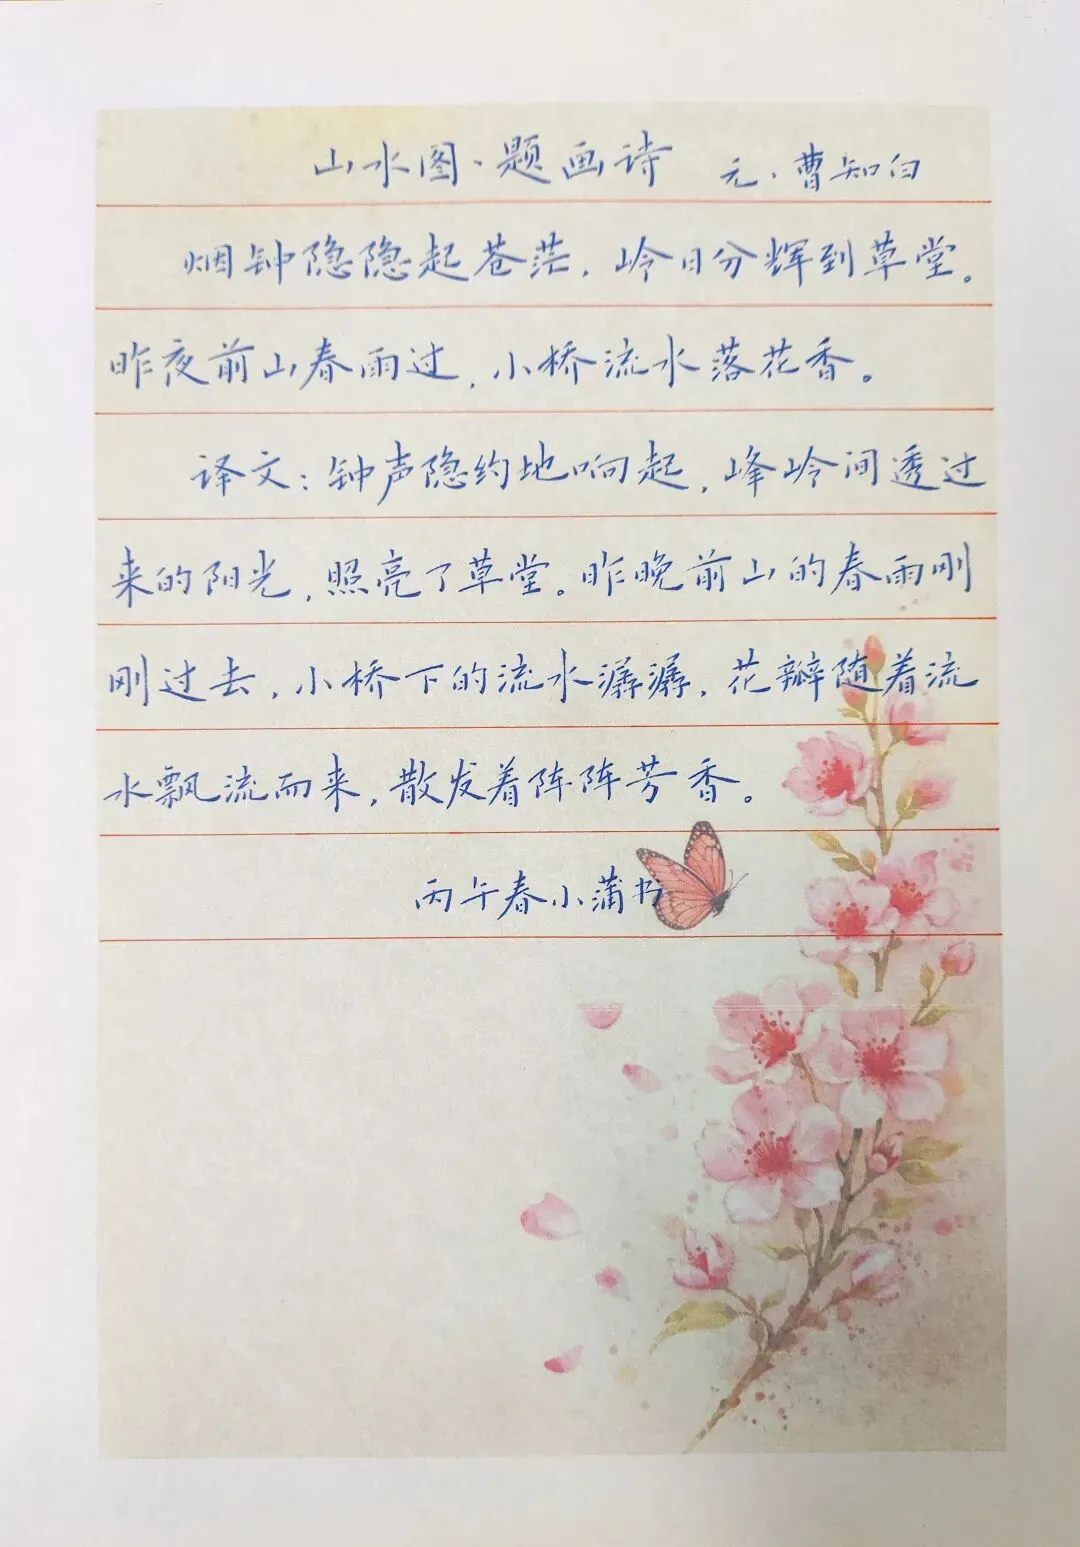 山水图·题画诗 元·曹知白
烟钟隐隐起苍茫，岭日分辉到草堂。
昨夜前山春雨过，小桥流水落花香。
译文：钟声隐约地响起，峰岭间透过
来的阳光，照亮了草堂。昨晚前山的春雨刚
刚过去，小桥下的流水潺潺，花瓣随着流
水飘流而来，散发着阵阵芳香。
丙午春小蒲书